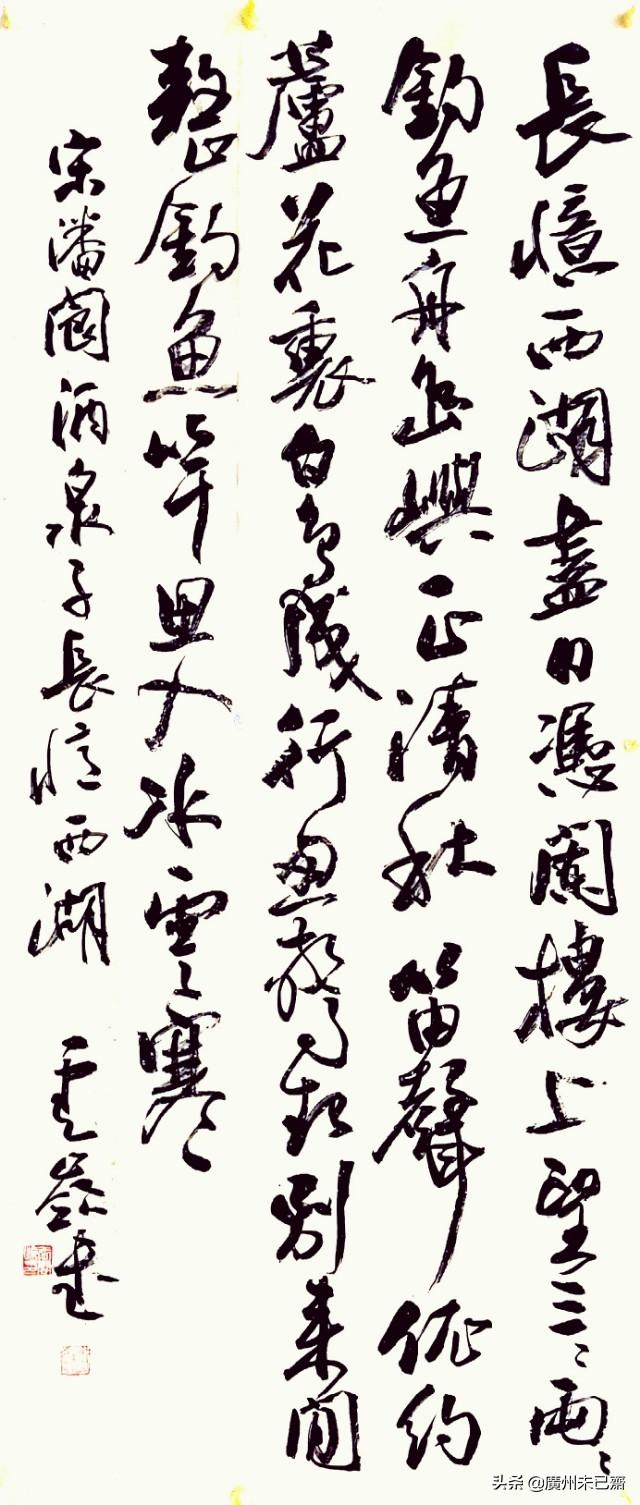 長憶西湖盡日憑闌樓上望三〻兩〻
釣魚舟島嶼正清秋笛聲依約
蘆花裏白鳥行忽驚起別來閒
整釣魚竿思入水雲寒
宋潘閬酒泉子長憶西湖
头条 @廣州未已齋